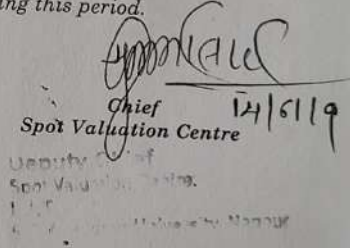 ing this period.
Chief
14/6/19
Spot Valuation Centre
Deputy Chief
Spot Valuation Centre.
University Nagpur